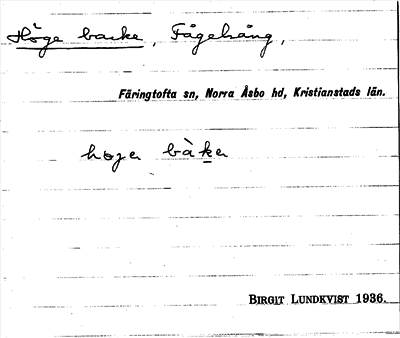 Höge backe, Fågelsång,
Färingtofta sn, Norra Åsbo hd, Kristianstads län.
høgɐ bàkɐ
BIRGIT LUNDKVIST 1936.